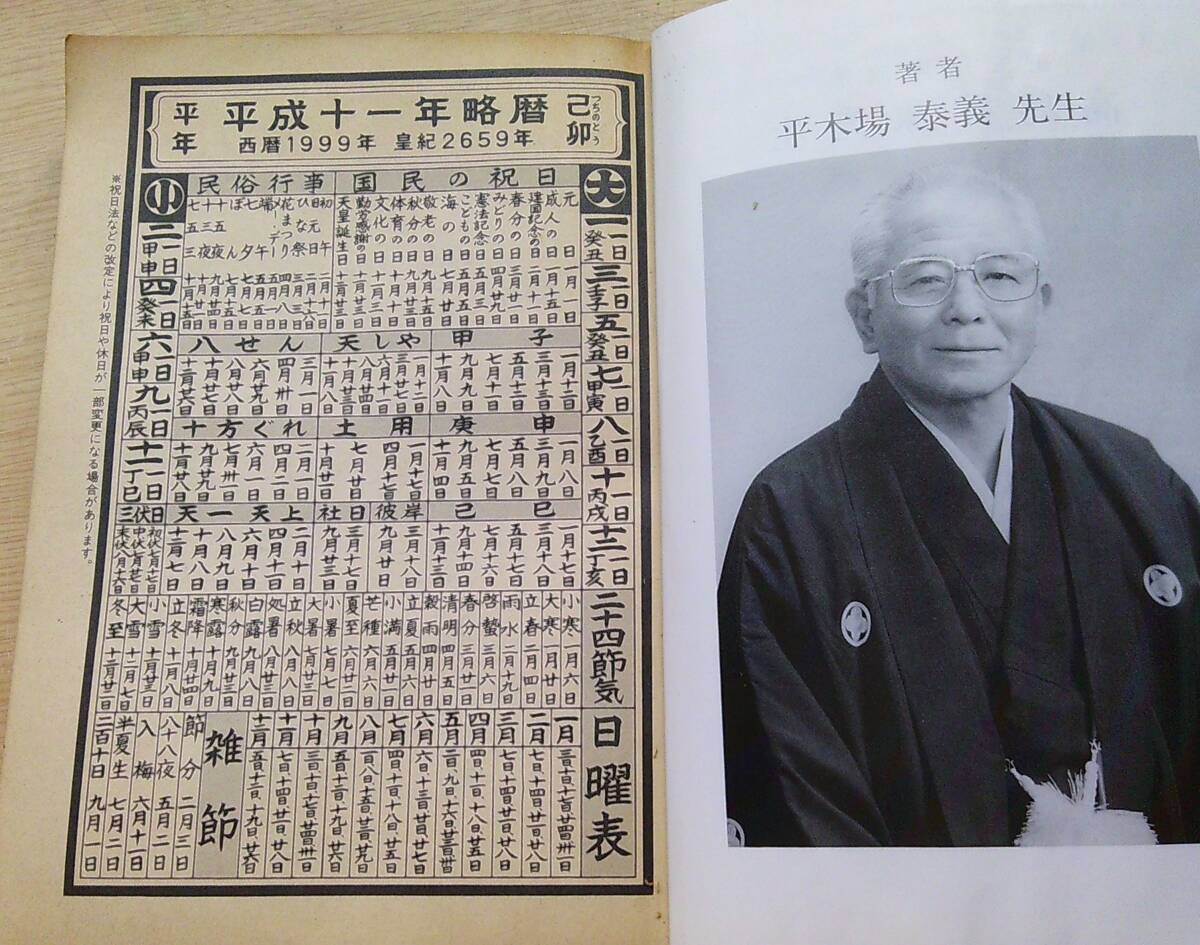 平年
平成十一年略暦
西暦1999年 皇紀2659年
己卯
つちのとう
大
一一日癸丑
三一日壬子
五一日癸丑
七一日甲寅
八一日乙酉
十一日丙戌
十二一日丁亥
国民の祝日
元日 一月一日
成人の日 一月十五日
建国記念の日 二月十一日
春分の日 三月廿一日
みどりの日 四月廿九日
憲法記念日 五月三日
こどもの日 五月五日
海の日 七月廿日
敬老の日 九月十五日
秋分の日 九月廿三日
体育の日 十月十日
文化の日 十一月三日
勤労感謝の日 十一月廿三日
天皇誕生日 十二月廿三日
民俗行事
初午 二月十日
旧元日 二月十六日
ひな祭 三月三日
花まつり 四月八日
メーデー 五月一日
端午 五月五日
七夕 七月七日
ぼん 七月十五日
十五夜 九月廿四日
十三夜 十月廿一日
七五三 十一月十五日
小
二一日甲申
四一日癸未
六一日甲申
九一日丙辰
十一一日丁巳
甲子
一月十二日
三月十三日
五月十二日
七月十一日
九月九日
十一月八日
天しや
一月十二日
三月廿七日
六月十一日
八月廿四日
十月廿三日
十一月八日
八せん
三月一日
四月卅日
六月廿九日
八月廿八日
十月廿七日
十二月廿六日
庚申
一月八日
三月九日
五月八日
七月七日
九月五日
十一月四日
土用
一月十七日
四月十七日
七月廿日
十月廿一日
十方ぐれ
二月一日
四月二日
六月一日
七月卅一日
九月廿九日
十一月廿八日
己巳
一月十七日
三月十八日
五月十七日
七月十六日
九月十四日
十一月十三日
彼岸
三月十八日
九月廿日
社日
三月十七日
九月廿三日
天一天上
二月十日
四月十一日
六月十日
八月九日
十月八日
十二月七日
三伏日
初伏七月十七日
中伏七月廿七日
末伏八月十六日
二十四節気
小寒 一月六日
大寒 一月廿日
立春 二月四日
雨水 二月十九日
啓蟄 三月六日
春分 三月廿一日
清明 四月五日
穀雨 四月廿日
立夏 五月六日
小満 五月廿一日
芒種 六月六日
夏至 六月廿二日
小暑 七月七日
大暑 七月廿三日
立秋 八月八日
処暑 八月廿三日
白露 九月八日
秋分 九月廿三日
寒露 十月九日
霜降 十月廿四日
立冬 十一月八日
小雪 十一月廿三日
大雪 十二月七日
冬至 十二月廿二日
日曜表
一月 三日・十日・十七日・廿四日・卅一日
二月 七日・十四日・廿一日・廿八日
三月 七日・十四日・廿一日・廿八日
四月 四日・十一日・十八日・廿五日
五月 二日・九日・十六日・廿三日・卅日
六月 六日・十三日・廿日・廿七日
七月 四日・十一日・十八日・廿五日
八月 一日・八日・十五日・廿二日・廿九日
九月 五日・十二日・十九日・廿六日
十月 三日・十日・十七日・廿四日・卅一日
十一月 七日・十四日・廿一日・廿八日
十二月 五日・十二日・十九日・廿六日
雑節
節分 二月三日
八十八夜 五月二日
入梅 六月十一日
半夏生 七月二日
二百十日 九月一日
※祝日法などの改定により祝日や休日が一部変更になる場合があります。
著者
平木場 泰義 先生